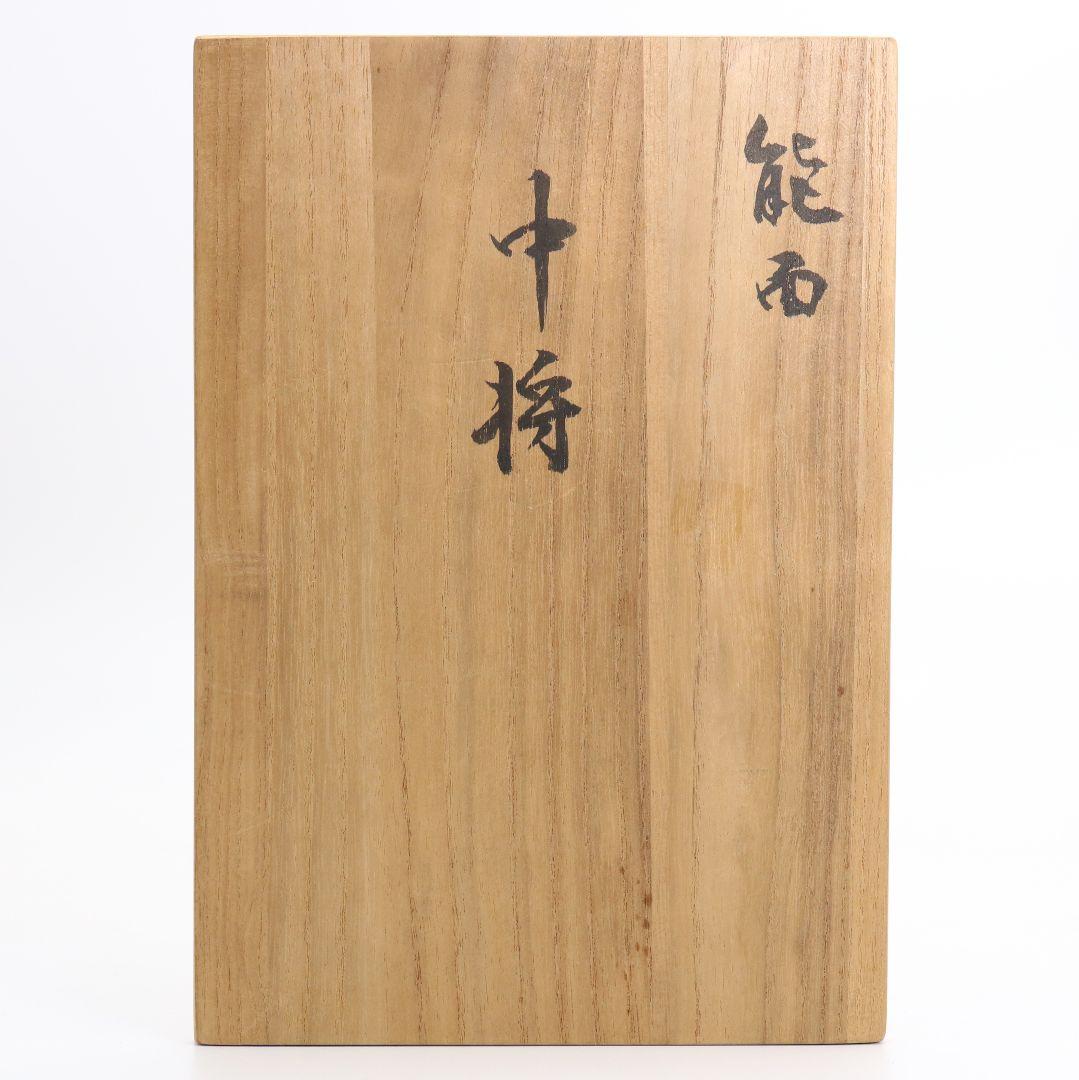 能面
中将